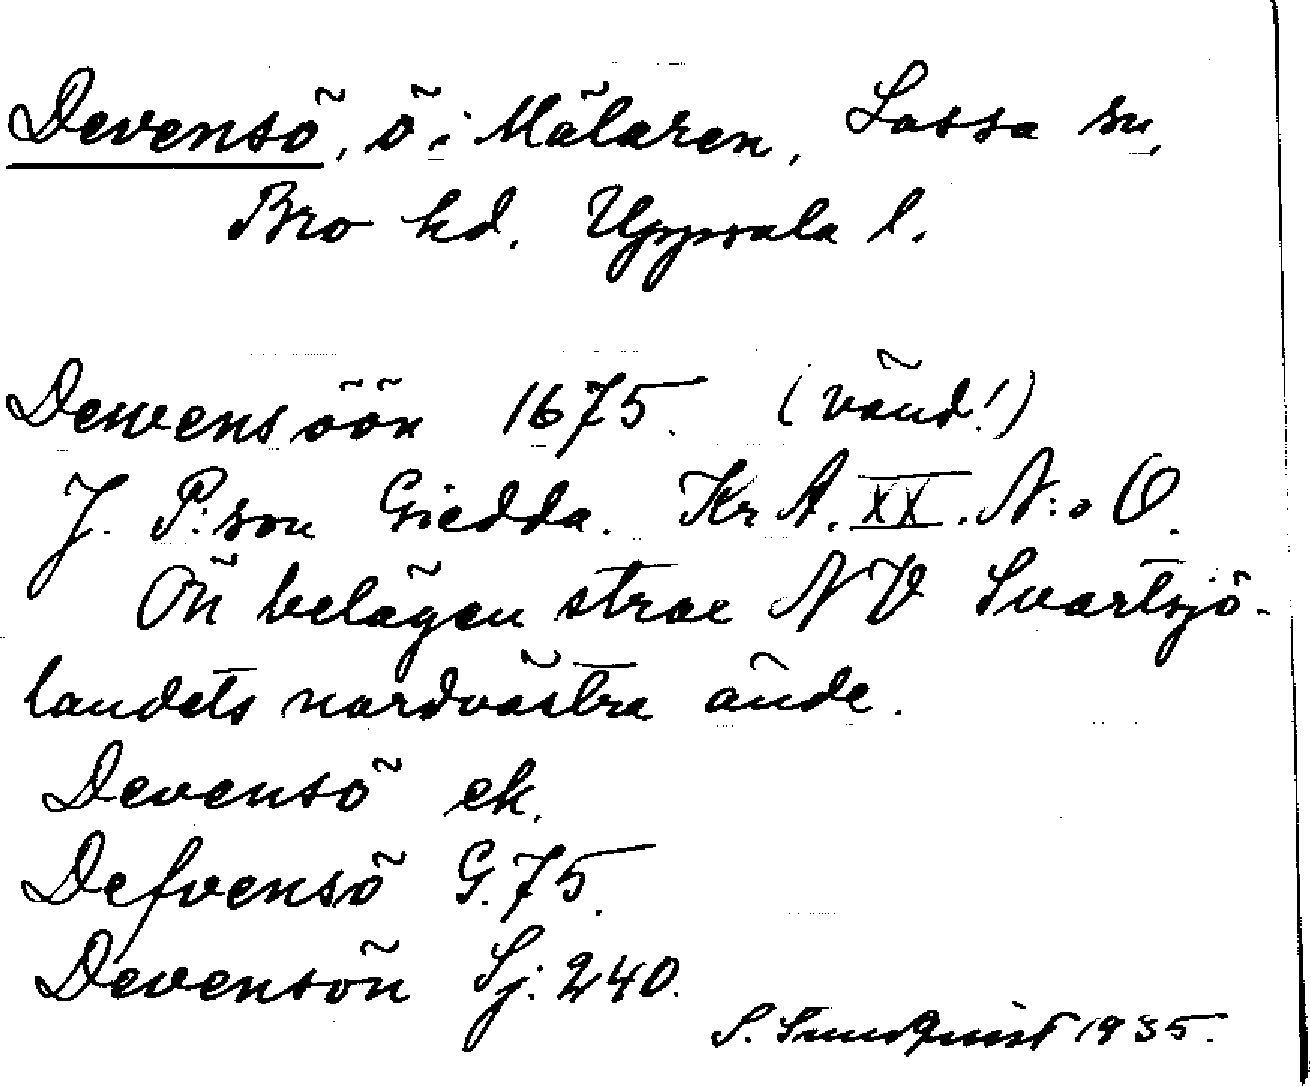 Devensö, ö i Mälaren, Låssa sn,
Bro hd. Uppsala l.
Dewensöön 1675. (vänd!)
J. P:son Giedda. Kr A. XX. N:o O.
Ön belägen strax NV Svartsjö-
landets nordvästra ände.
Devensö ek.
Defvensö G. 75.
Devensön Sj: 240.
S. Sundquist 1935.